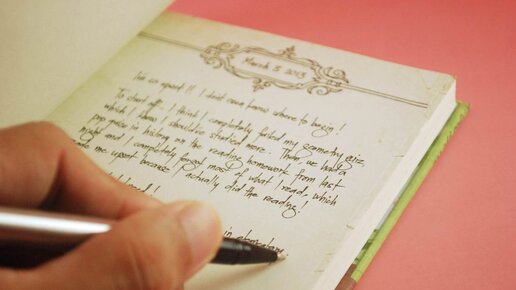 March 5 2013
I'm so upset !! I dont even know where to begin !
To start off, I think I completely failed my geometry quiz
which I know I should've studied more. Then, we had a
pop quiz in history on the reading homework from last
night and I completely forgot most of what I read, which
made me upset because I actually did the reading!
in elementary